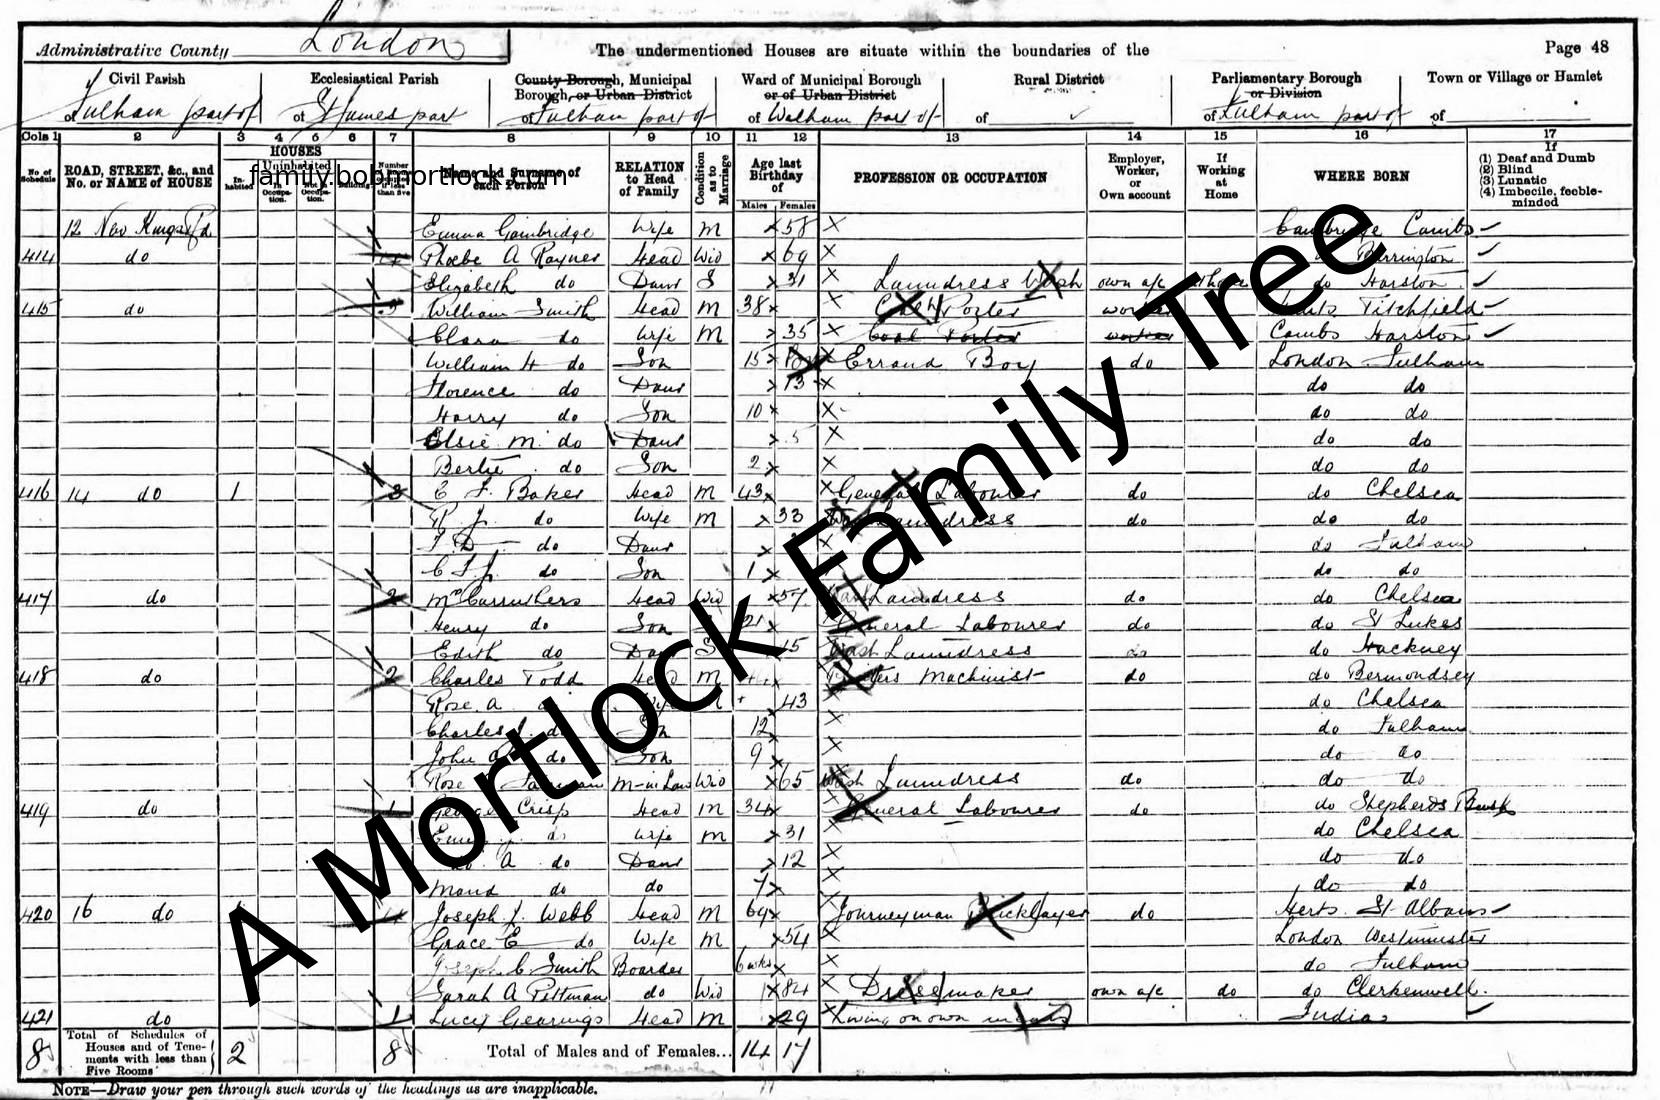 Administrative County London The undermentioned Houses are situate within the boundaries of the Page 48
Civil Parish Ecclesiastical Parish County Borough, Municipal Borough, or Urban District Ward of Municipal Borough or of Urban District Rural District Parliamentary Borough or Division Town or Village or Hamlet
of Fulham part of of St James part of Fulham part of of Walham part of of of Fulham part of of
Cols 1 2 3 4 5 6 7 8 9 10 11 12 13 14 15 16 17
No. of Schedule ROAD, STREET, &c., and No. or NAME of HOUSE HOUSES Inhabited Uninhabited Name and Surname of each Person RELATION to Head of Family Condition as to Marriage Age last Birthday of Males Females PROFESSION OR OCCUPATION Employer, Worker, or Own account If Working at Home WHERE BORN If (1) Deaf and Dumb (2) Blind (3) Lunatic (4) Imbecile, feeble-minded
family.bobmortlock.com
12 New Kings Rd Emma Gambridge Wife M 58 Cambridge Cambs
414 do Phoebe A Rayner Head Wid 69 Barrington
Elizabeth do Daur S 31 Laundress Wash own a/c At home do Harston
415 do 3 William Smith Head M 38 Coal Porter worker Titchfield
Clara do Wife M 35 Coal Porter worker Cambs Harston
William H do Son 15 Errand Boy do London Fulham
Florence do Daur 13 do do
Harry do Son 10 do do
Elsie M do Daur 5 do do
Bertie do Son 2 do do
416 14 do 1 3 E F Baker Head M 43 General Labourer do do Chelsea
R J do Wife M 33 Laundress do do do
do Daur do Fulham
C F J do Son 1 do do
417 do 2 Mrs Carruthers Head Wid 57 Laundress do do Chelsea
Henry do Son 21 General Labourer do do St Lukes
Edith do Daur S 15 Wash Laundress do do Hackney
418 do 2 Charles Todd Head M Machinist do do Bermondsey
Rose A do Wife M 43 do Chelsea
Charles J do Son 12 do Fulham
John do Son 9 do do
Rose M-in Law Wid 65 Wash Laundress do do do
419 do 1 George Crisp Head M 34 General Labourer do do Shepherds Bush
do Wife M 31 do Chelsea
A do Daur 12 do do
Maud do do 7 do do
420 16 do 4 Joseph J. Webb Head M 64 Journeyman Bricklayer do Herts St Albans
Grace E do Wife M 54 London Westminster
Joseph C Smith Boarder 6 wks do Fulham
Sarah A Pettman do Wid 84 Dressmaker own a/c do do Clerkenwell
421 do 1 Lucy Gearings Head M 29 Living on own means India
8 Total of Schedules of Houses and of Tenements with less than Five Rooms 2 8 Total of Males and of Females... 14 17
NOTE—Draw your pen through such words of the headings as are inapplicable.
A Mortlock Family Tree